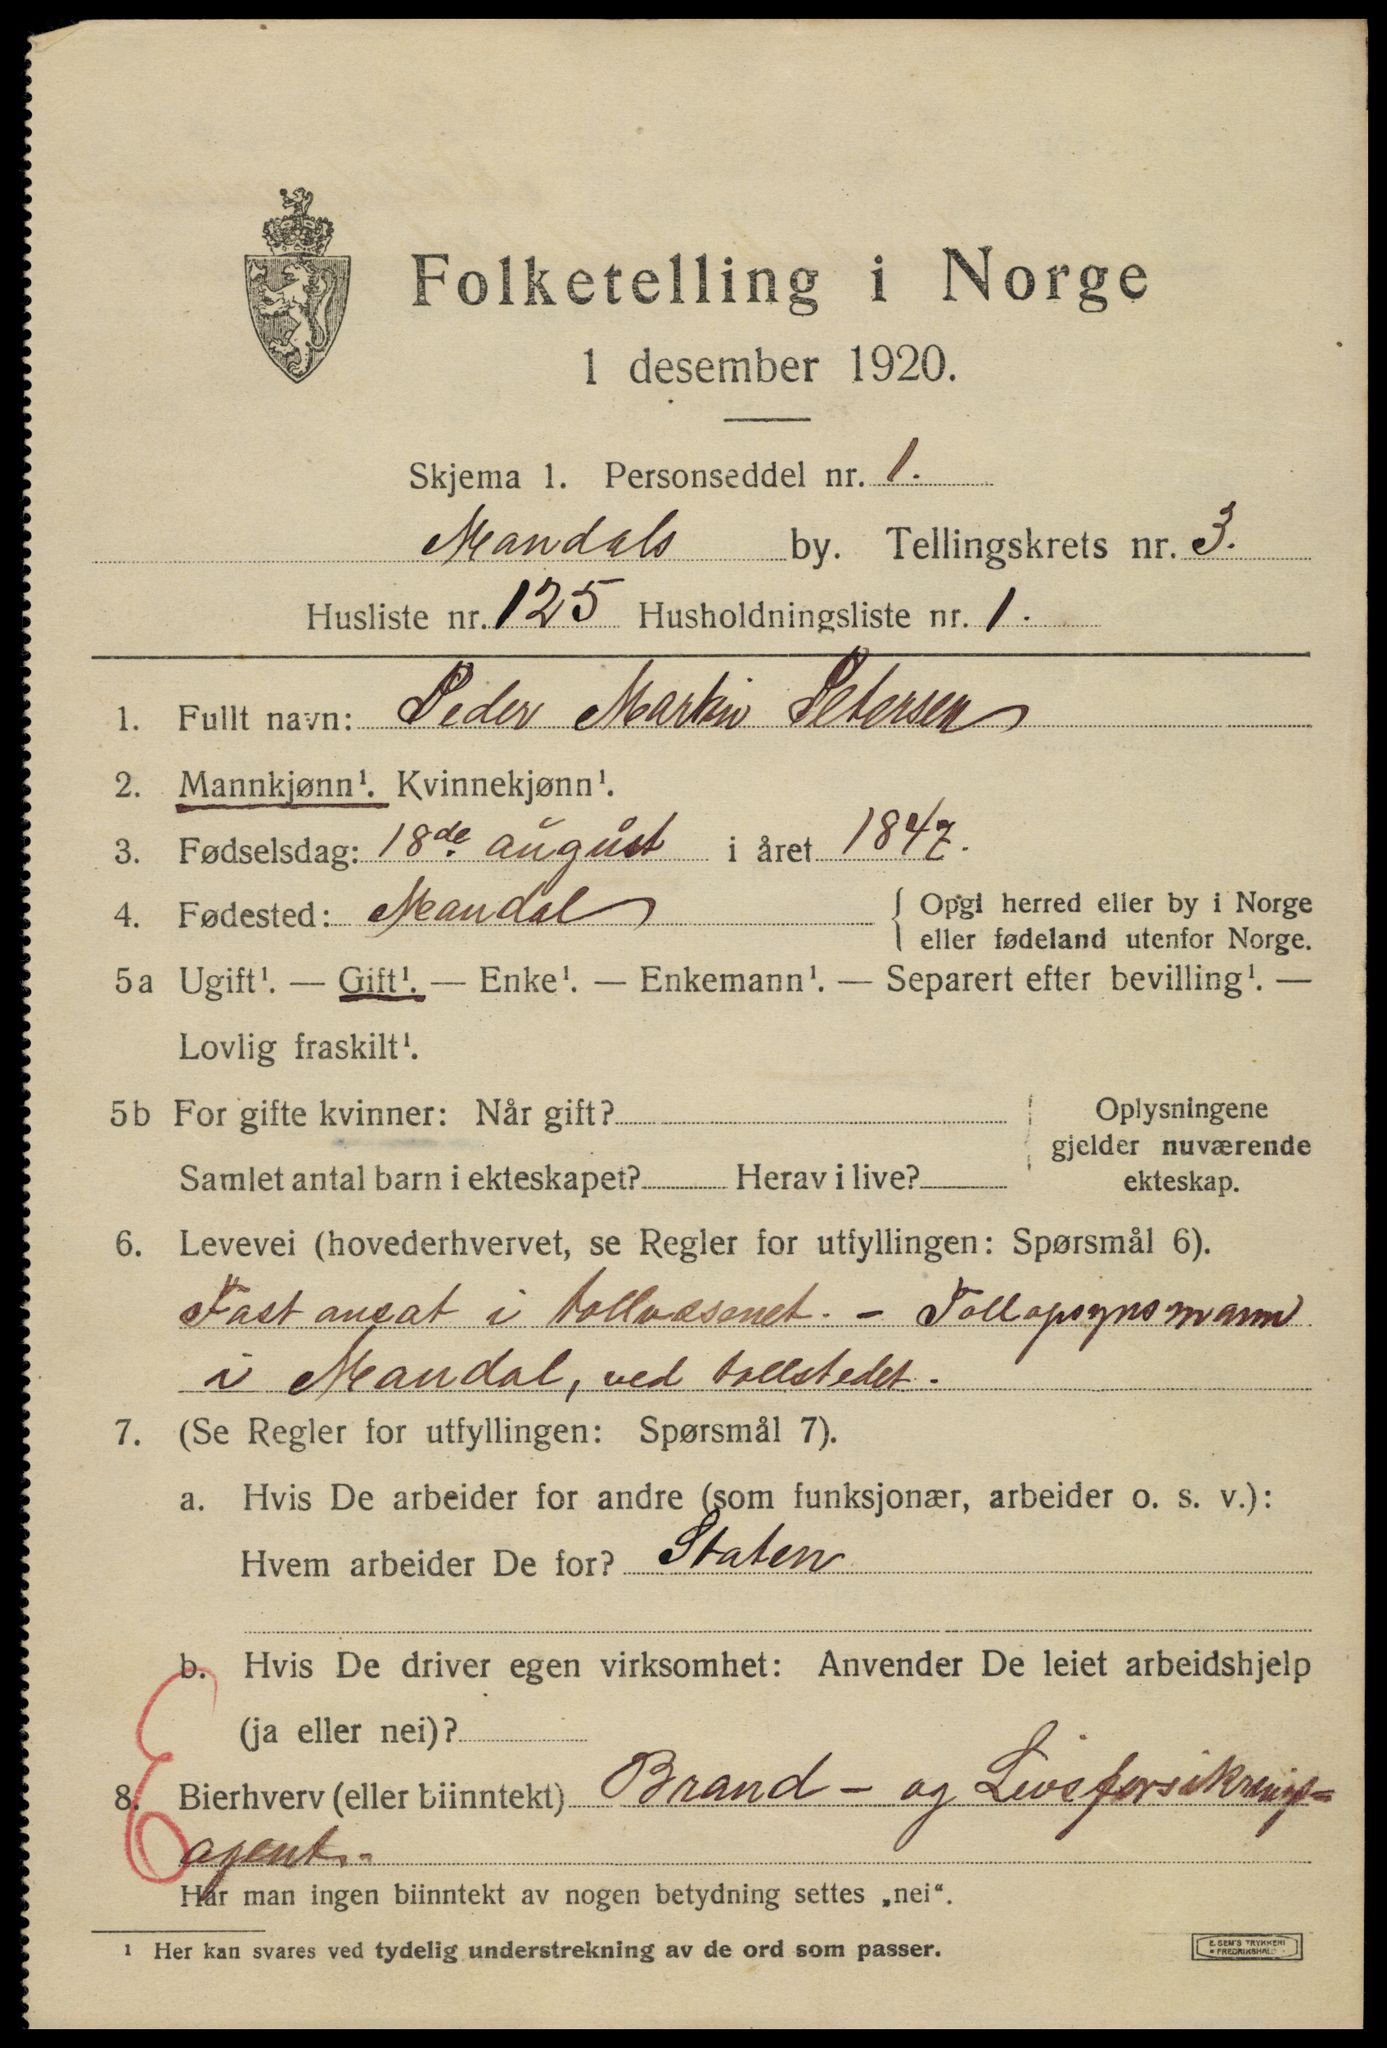 Folketelling i Norge
1 desember 1920.
Skjema 1. Personseddel nr. 1.
Mandals by. Tellingskrets nr. 3.
Husliste nr. 125 Husholdningsliste nr. 1.
1. Fullt navn: Peder Martin Petersen
2. Mannkjønn¹. Kvinnekjønn¹.
3. Fødselsdag: 18de. august i året 1847.
4. Fødested: Mandal { Opgi herred eller by i Norge
eller fødeland utenfor Norge.
5a Ugift¹. — Gift¹. — Enke¹. — Enkemann¹. — Separert efter bevilling¹. —
Lovlig fraskilt¹.
5b For gifte kvinner: Når gift? Oplysningene
gjelder nuværende
Samlet antal barn i ekteskapet? Herav i live? ekteskap.
6. Levevei (hovederhvervet, se Regler for utfyllingen: Spørsmål 6).
Fast ansat i tollvæsenet. - Tollopsynsmann
i Mandal, ved tollstedet.
7. (Se Regler for utfyllingen: Spørsmål 7).
a. Hvis De arbeider for andre (som funksjonær, arbeider o. s. v.):
Hvem arbeider De for? Staten
b. Hvis De driver egen virksomhet: Anvender De leiet arbeidshjelp
(ja eller nei)?
8. Bierhverv (eller biinntekt) Brand- og Livsforsikrings=
agent.-
Har man ingen biinntekt av nogen betydning settes „nei“.
¹ Her kan svares ved tydelig understrekning av de ord som passer.
E. SEM'S TRYKKERI
FREDRIKSHALD